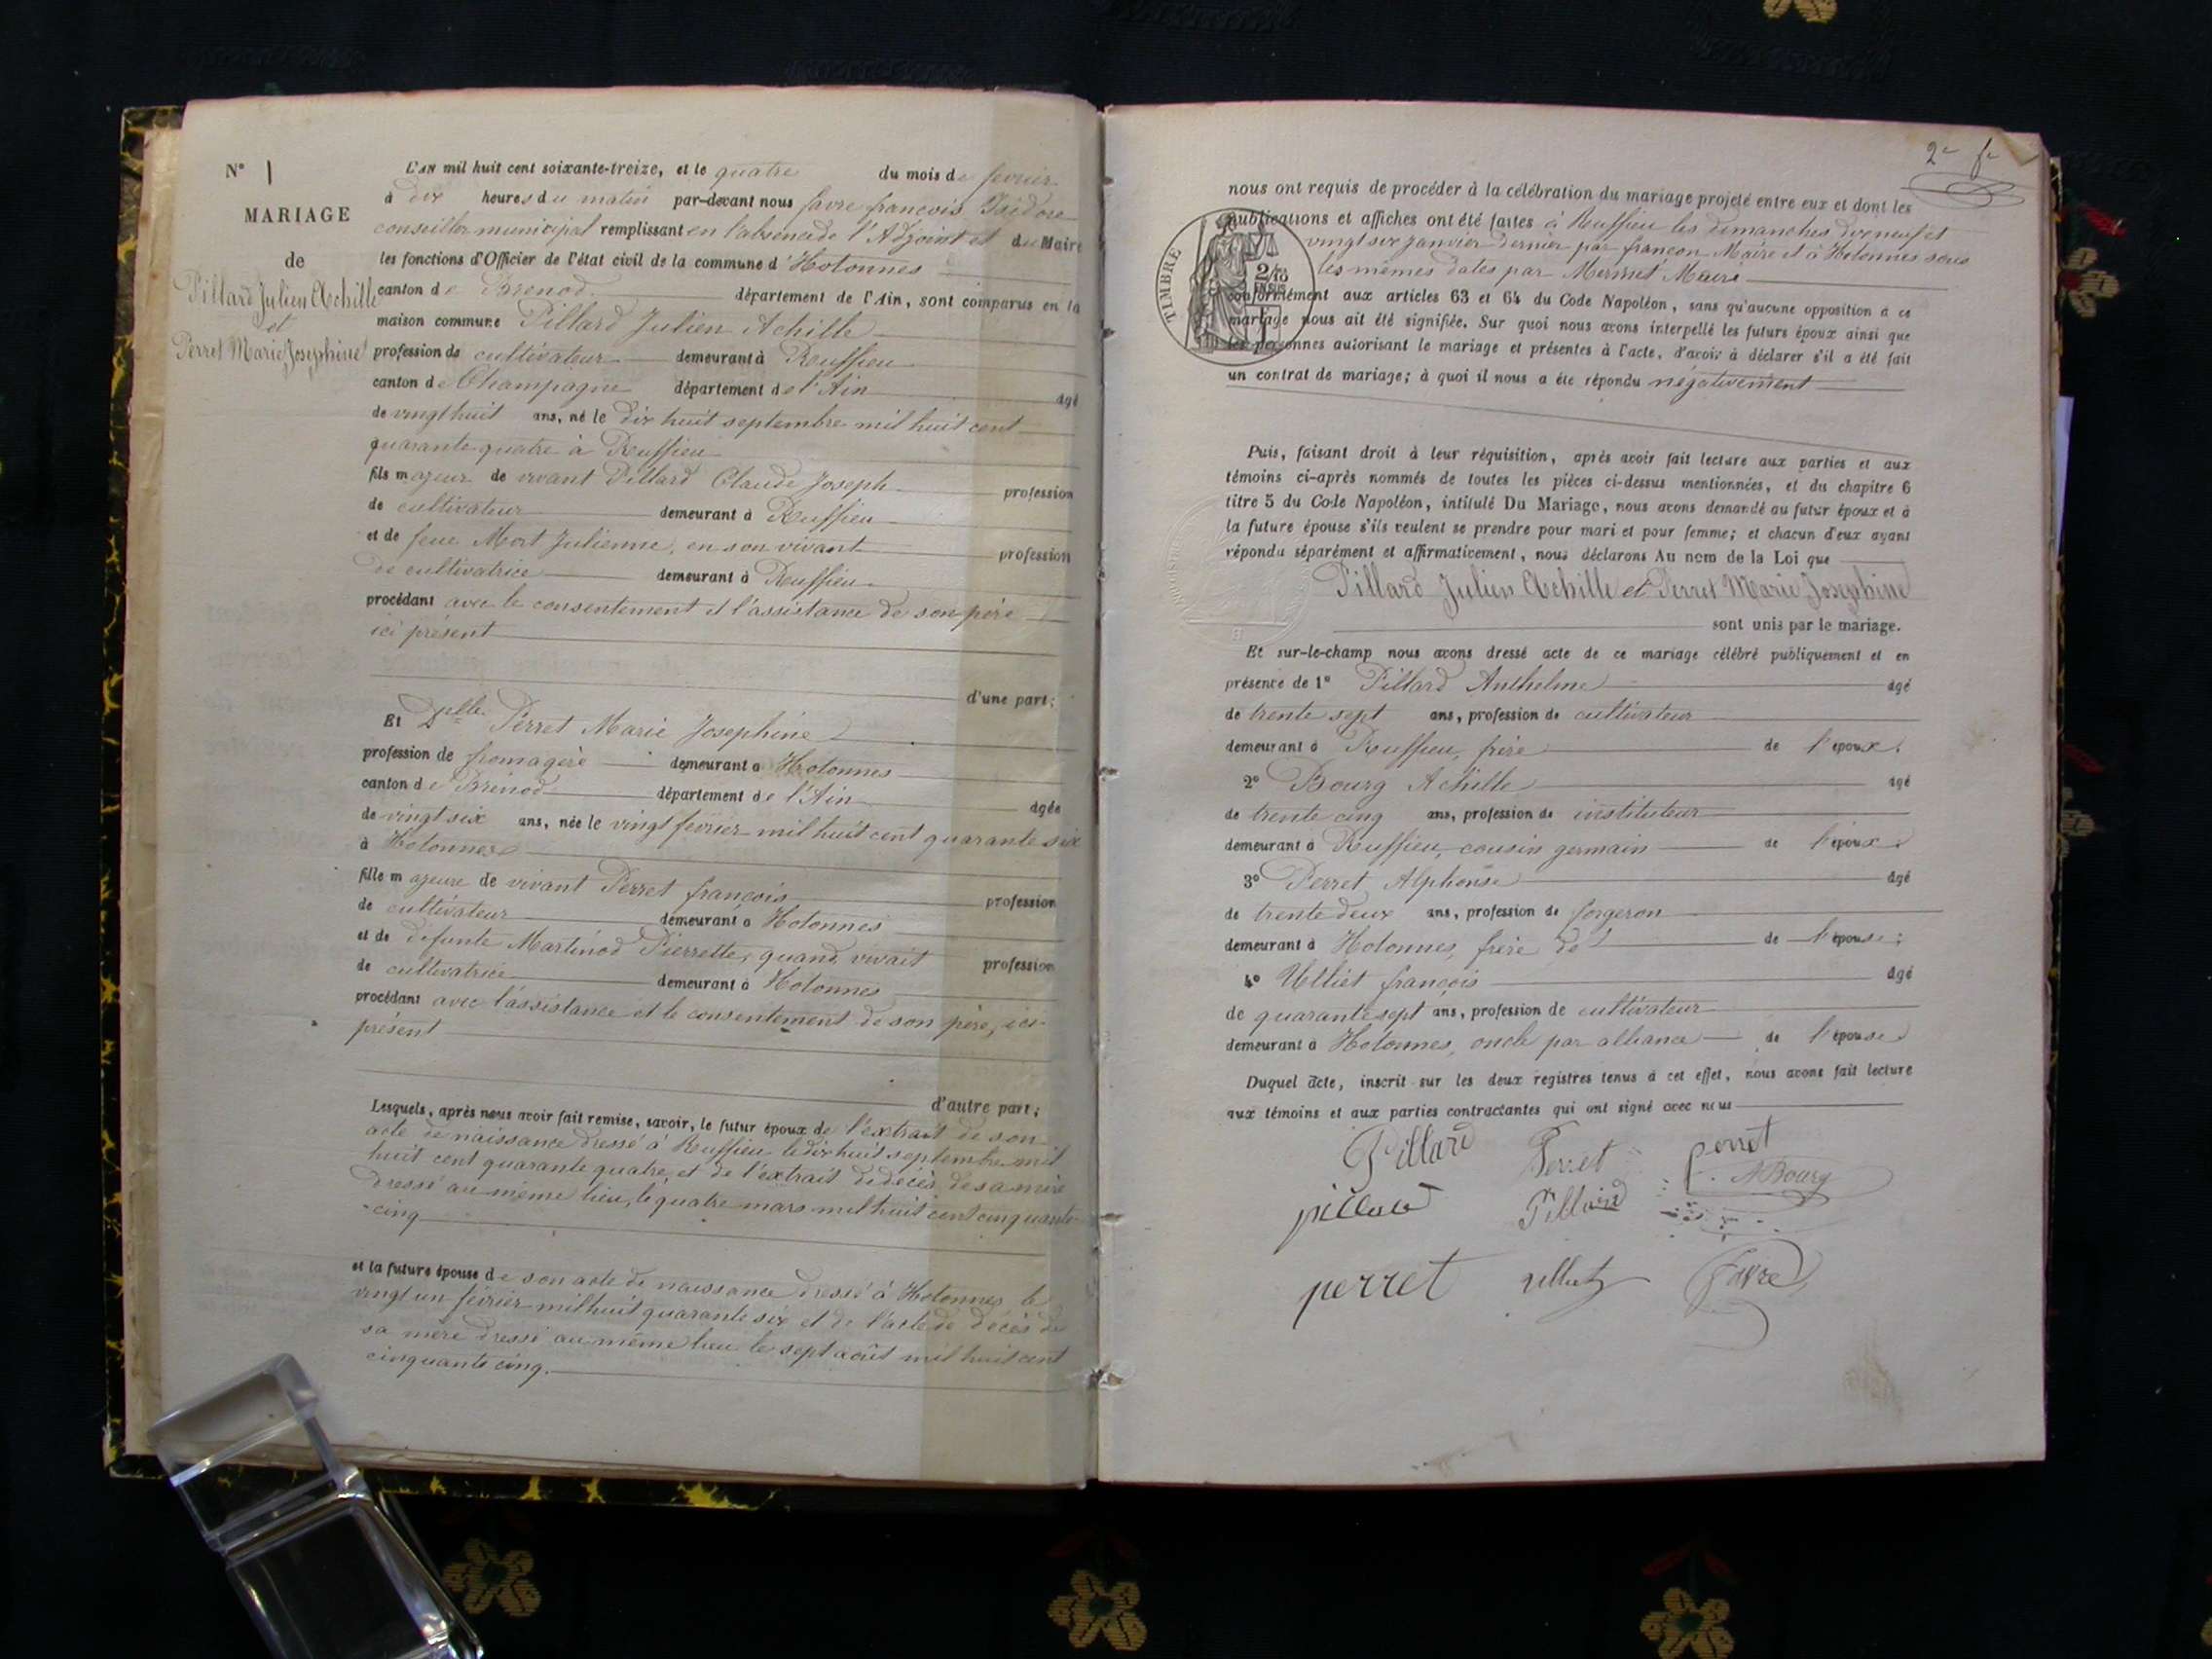 N° 1
MARIAGE
de
Pillard Julien Achille
et
Perret Marie Josephine
L'AN mil huit cent soixante-treize, et le quatre du mois de fevrier
à dix heures du matin par-devant nous favre françois Isidore
conseiller municipal remplissant en l'absence de l'Adjoint et du Maire
les fonctions d'Officier de l'état civil de la commune d'Hotonnes
canton de Brenod département de l'Ain, sont comparus en la
maison commune Pillard Julien Achille
profession de cultivateur demeurant à Ruffieu
canton de Champagne département de l'Ain agé
de vingt huit ans, né le dix huit septembre mil huit cent
quarante quatre à Ruffieu
fils majeur de vivant Pillard Claude Joseph profession
de cultivateur demeurant à Ruffieu
et de feue Mort Julienne, en son vivant profession
de cultivatrice demeurant à Ruffieu
procédant avec le consentement et l'assistance de son père
ici présent
d'une part;
Et Dlle Perret Marie Josephine
profession de fromagère demeurant à Hotonnes
canton de Brénod département de l'Ain agée
de vingt six ans, née le vingt février mil huit cent quarante six
à Hotonnes
fille majeure de vivant Perret françois profession
de cultivateur demeurant à Hotonnes
et de défunte Martinod Pierrette, quand vivait profession
de cultivatrice demeurant à Hotonnes
procédant avec l'assistance et le consentement de son père, ici
présent
d'autre part;
Lesquels, après nous avoir fait remise, savoir, le futur époux de l'extrait de son
acte de naissance dressé à Ruffieu le dix huit septembre mil
huit cent quarante quatre, et de l'extrait de décès de sa mère
dressé au même lieu, le quatre mars mil huit cent cinquante
-cinq
et la future épouse de son acte de naissance dressé à Hotonnes le
vingt un février mil huit quarante six et de l'acte de décès de
sa mère dressé au même lieu le sept août mil huit cent
cinquante cinq.
2e f.
nous ont requis de procéder à la célébration du mariage projeté entre eux et dont les
publications et affiches ont été faites à Ruffieu les dimanches dix neuf et
vingt six janvier dernier par françon Maire et à Hotonnes sous
les mêmes dates par Mermet Maire
conformément aux articles 63 et 64 du Code Napoléon, sans qu'aucune opposition à ce
mariage nous ait été signifiée. Sur quoi nous avons interpellé les futurs époux ainsi que
les personnes autorisant le mariage et présentes à l'acte, d'avoir à déclarer s'il a été fait
un contrat de mariage; à quoi il nous a été répondu négativement
TIMBRE
2/10
EN SUS
Puis, faisant droit à leur réquisition, après avoir fait lecture aux parties et aux
témoins ci-après nommés de toutes les pièces ci-dessus mentionnées, et du chapitre 6
titre 5 du Code Napoléon, intitulé Du Mariage, nous avons demandé au futur époux et à
la future épouse s'ils veulent se prendre pour mari et pour femme; et chacun d'eux ayant
répondu séparément et affirmativement, nous déclarons Au nom de la Loi que
Pillard Julien Achille et Perret Marie Josephine
sont unis par le mariage.
Et sur-le-champ nous avons dressé acte de ce mariage célébré publiquement et en
présence de 1° Pillard Anthelme agé
de trente sept ans, profession de cultivateur
demeurant à Ruffieu, frère de l'époux.
2° Bourg Achille agé
de trente cinq ans, profession de instituteur
demeurant à Ruffieu, cousin germain de l'époux.
3° Perret Alphonse agé
de trente deux ans, profession de forgeron
demeurant à Hotonnes, frère de de l'épouse;
4° Ulliet françois agé
de quarante sept ans, profession de cultivateur
demeurant à Hotonnes, oncle par alliance de l'épouse
Duquel acte, inscrit sur les deux registres tenus à cet effet, nous avons fait lecture
aux témoins et aux parties contractantes qui ont signé avec nous
Pillard Perret perret
A Bourg
pillard Pillard
perret ulliet Favre